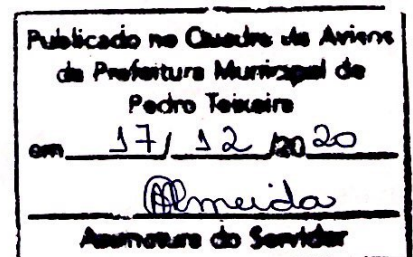 Publicado no Quadro de Avisos
da Prefeitura Municipal de
Pedro Teixeira
em 17/ 12 /2020
Almeida
Assinatura do Servidor